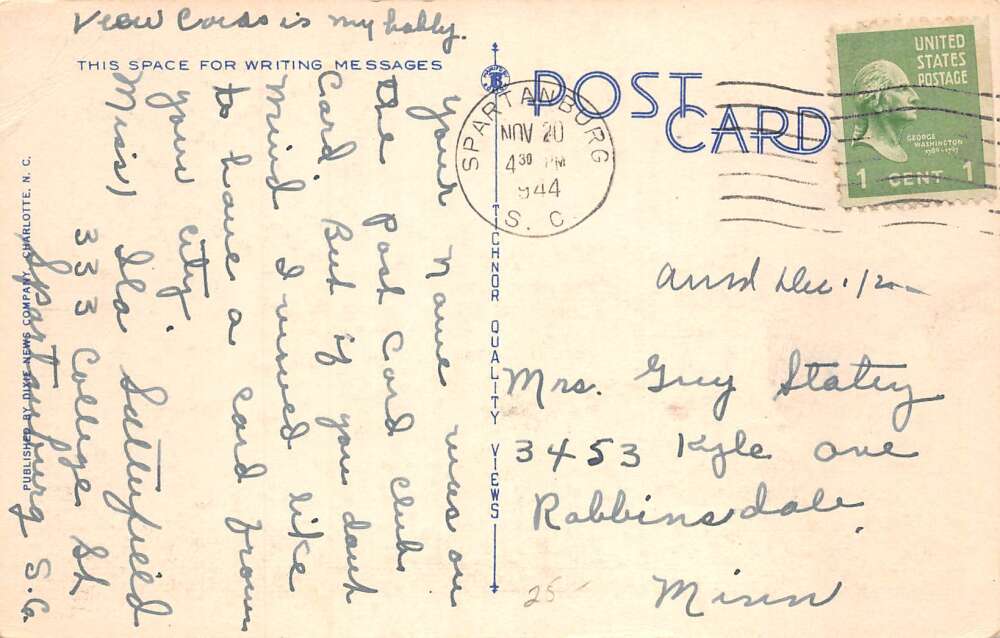 View Cards is my hobby.
THIS SPACE FOR WRITING MESSAGES
your name was on
the Post Card club
Card. But if you dont
mind I would like
to have a card from
your city.
Miss) Ila Satterfield
333 College St
Spartanburg S.C.
PUBLISHED BY DIXIE NEWS COMPANY, CHARLOTTE, N. C.
TICHNOR QUALITY VIEWS
POST CARD
SPARTANBURG
NOV 20
4 30 PM
1944
S. C.
UNITED
STATES
POSTAGE
GEORGE
WASHINGTON
1789-1797
1 CENT 1
Dec. 12
Mrs. Guy Staley
3453 Kyle Ave
Robbinsdale
Minn
25